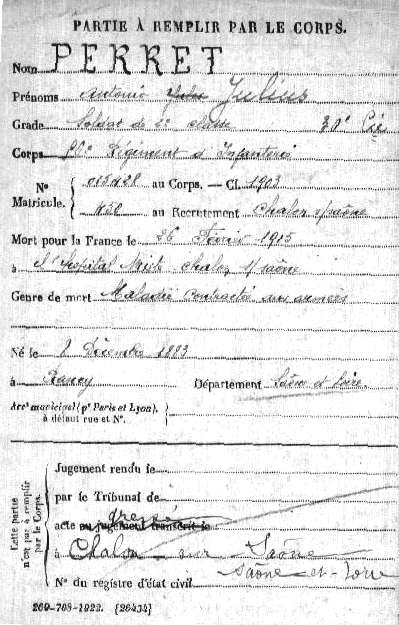 PARTIE À REMPLIR PAR LE CORPS.
Nom PERRET
Prénoms Antonio Jules Julius
Grade Soldat de 2e classe 30e Cie
Corps Régiment d'Infanterie
Nº Matricule. au Corps. — Cl. 1903
au Recrutement Chalon s/saône
Mort pour la France le 26 Février 1915
à l'hôpital Mixte Chalon s/saône
Genre de mort Maladie contractée aux armées
Né le 8 Décembre 1883
à Rancy Département Saône et Loire
Arrt municipal (pr Paris et Lyon), à défaut rue et Nº.
Cette partie n'est pas à remplir par le Corps.
Jugement rendu le
par le Tribunal de
dressé
acte ou jugement transcrit le
à Chalon sur Saône
Saône-et-Loire
Nº du registre d'état civil
269-708-1922. [26434]